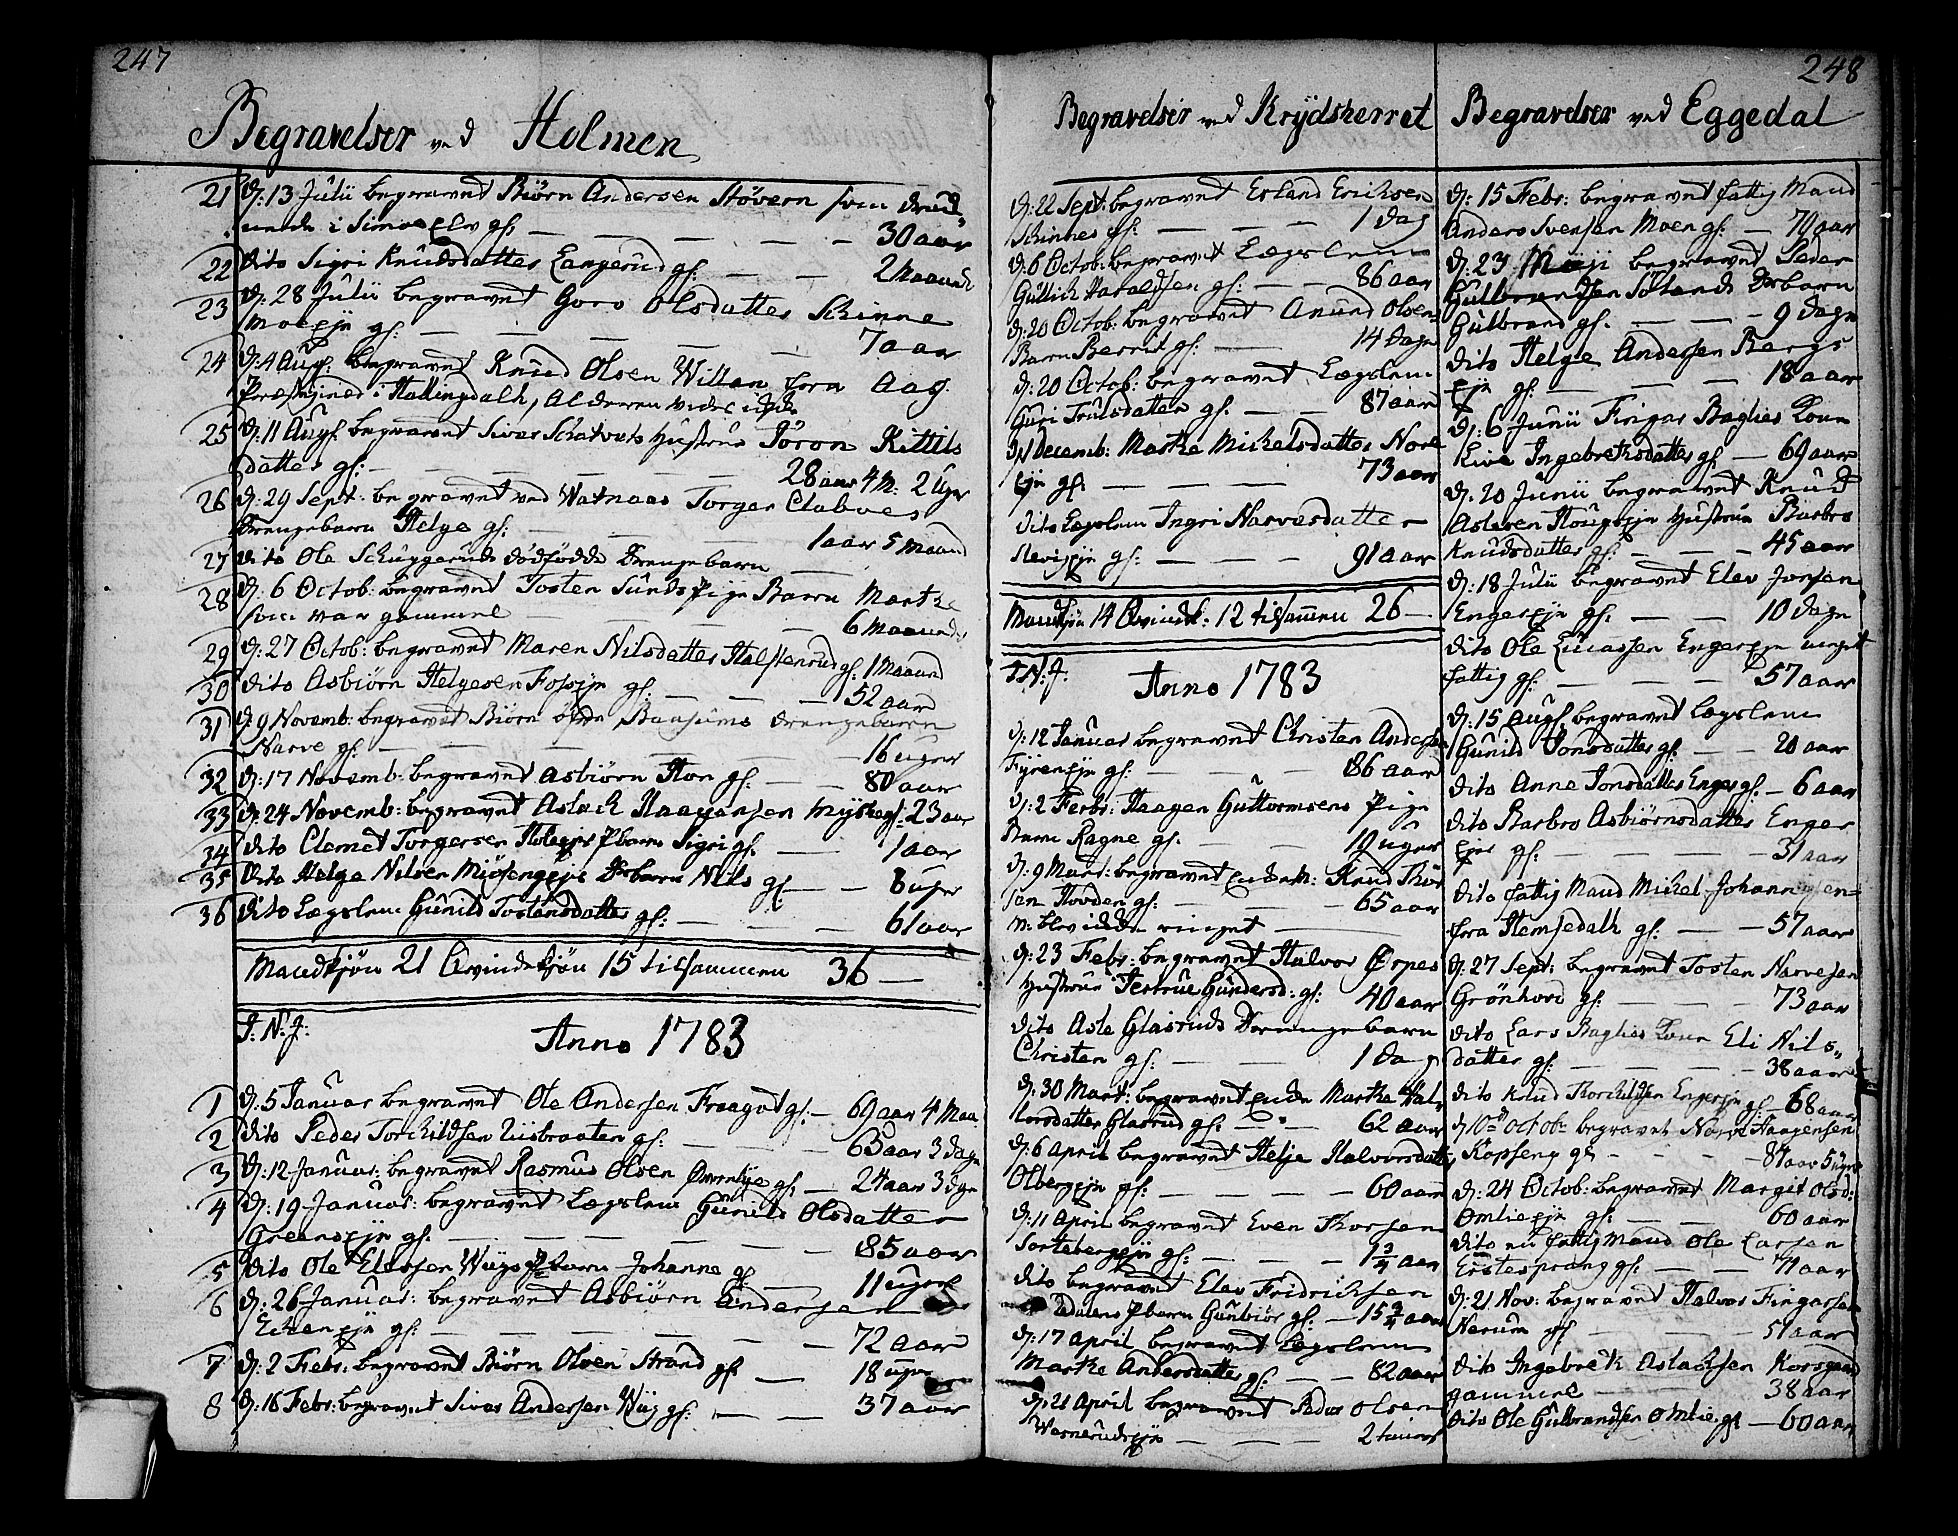 247
Begravelser ved Holmen
21 D: 13 Julii begravet Biørn Andersen Støvern som drud-
nede i Simoe Elv gl: — 30 aar
22 dito Sigri Knudsdatter Langerud gl: — 2 Maaned
23 D: 28 Julii begravet Goro Olsdatter Skinne
Moeeje gl: — 7 aar
24 D: 4 Aug: begravet Knud Olsen Villan fra Aag
Præstegied i Hallingdalh, Alderen vides ikke
25 D: 11 Aug: begravet Siver Schatvets Hustrue Jøron Kittils
datter gl: — 28 aar 4 M: 2 Uger
26 D: 29 Sept: begravet ved Watnaas Torger Clabves
Drengebarn Helge gl: — 1 aar 5 Maaned
27 dito Ole Schuggeruds dødfødde Drengebarn —
28 D: 6 Octob: begravet Tosten Sunds Pige Barn Marthe
som var gammel — 6 Maaneder
29 D: 27 Octob: begravet Maren Nilsdatter Halstenrud gl: 1 Maaned
30 dito Asbiørn Helgesen Fosseje gl: — 52 aar
31 D: 9 Novemb: begravet Biørn øfde Bausums drengebarn
Narve gl: — 16 uger
32 D: 17 Novemb: begravet Asbiørn Hoe gl: — 80 aar
33 D: 24 Novemb: begravet Aslach Haagensen Myhre gl: 23 aar
34 dito Clemet Torgersen Pbarn Sigri gl: — 1 aar
35 dito Helge Nilsen Miøsengeje Drbarn Nils gl: — 8 uger
36 dito Lægslem Gunild Tostensdatter gl: — 61 aar
Mandkjøn 21 Qvindekjøn 15 tilsammen 36 —
J. N. J. Anno 1783
1 D: 5 Januar begravet Ole Andersen Fraagot gl: — 69 aar 4 Maa
2 dito Peder Torchildsen Liisbraaten gl: — 63 aar 3 dage
3 D: 12 Januar: begravet Rasmus Olsen gl: — 24 aar 3 dge
4 D: 19 Januar: begravet Lægslem Gunild Olsdatter
Grenseje gl: — 85 aar
5 dito Ole Elevsen Wiigs Pbarn Johanne gl: — 11 uger
6 D: 26 Januar: begravet Asbiørn Andersen
gl: — 72 aar
7 D: 2 Febr: begravet Biørn Olsen Strand gl: — 18 uger
8 D: 16 Febr: begravet Siver Andersen Wiig gl: — 37 aar
Begravelser ved Krydsherret
D: 22 Sept: begravet Erland Ericksen
Skinnes gl: — 1 dag
D: 6 Octob: begravet Lægslem
Gullich Haraldsen gl: — 86 aar
D: 20 Octob: begravet Anund Olsens
Barn Berrit gl: — 14 dage
D: 20 Octob: begravet Lægslem
Guri Trulsdatter gl: — 87 aar
D: 1 Decemb: Marthe Mickelsdatter Nore
Eje gl: — 73 aar
dito Lægslem Ingri Narvesdatter
Sleviseje gl: — 91 aar
Mandkjøn 14 Qvindek: 12 tilsammen 26 —
J. N. J. Anno 1783
D: 12 Januar begravet Christen Andersen
Fyreneje gl: — 86 aar
D: 2 Febr: Haagen Guttormsens Pige
Barn Ragne gl: — 10 uger
D: 9 Mart: begravet Enkem: Knud Thor
sen Hovden gl: — 65 aar
N: blev ikke ringet —
D: 23 Febr: begravet Halvor Ørpes
Hustrue Jertrue Gundersd: gl: 40 aar
dito Asle Glasruds Drengebarn
Christen gl: — 1 dag
D: 30 Mart: begravet Enke Marthe Hal-
vorsdatter Glasrud gl: — 62 aar
D: 6 April begravet Helje Halvorsdatter
Olbergeje gl: — 60 aar
D: 11 April begravet Even Thorsen
Sortebergeje gl: — 1 3/4 aar
dito begravet Elev Fridricksen
Pbarn Gunbiør gl: — 15 3/4 aar
D: 17 April begravet Lægslem
Marthe Andersdatter gl: — 82 aar
D: 21 April begravet Peder Olsen
Wernerudseje — 2 timer
248
Begravelser ved Eggedal
D: 15 Febr: begravet fattig Mand
Anders Svensen Moen gl: — 70 aar
D: 23 Maji begravet Peder
Gulbrandsen Søtands Drbarn
Gulbrand gl: — 9 dage
dito Helge Andersen Bergs
Eje gl: — 18 aar
D: 6 Junii Fingar Baglies Kone
Live Ingebretsdatter gl: — 69 aar
D: 20 Junii begravet Knud
Astesen Hougseje Hustrue Barbro
Knudsdatter gl: — 45 aar
D: 18 Julii begravet Elev Jonsen
Engereje gl: — 10 dage
dito Ole Lucassen Engereje meget
fattig gl: — 57 aar
D: 15 Aug: begravet Lægslem
Gunild Jonsdatter gl: — 20 aar
dito Anne Jonsdatter Enger gl: — 6 aar
dito Barbro Asbiørnsdatter Enger
Eje gl: — 31 aar
dito fattig Mand Mickel Johannesen
fra Hemsedalh gl: — 57 aar
D: 27 Sept: begravet Tosten Narvesen
Grønhovd gl: — 73 aar
dito Lars Baglies Kone Eli Nils-
datter gl: — 38 aar
dito Knud Thorchildsen Engereje gl: 68 aar
D 10de Octob: begravet Narve Haagensen
Kopseng gl: — 87 aar 5 uger
D: 24 Octob: begravet Margit Olsd:
Omlieeje gl: — 60 aar
dito en fattig Mand Ole Larsen
gl: — 71 aar
D: 21 Nov: begravet Halvor Fingarsen
Nerum gl: — 51 aar
dito Ingebreth Aslachsen Korsgaard
gammel — 38 aar
dito Ole Gulbrandsen Omlie gl — 60 aar